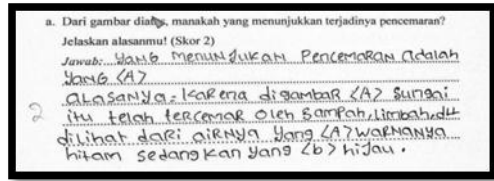 a. Dari gambar diatas, manakah yang menunjukkan terjadinya pencemaran?
Jelaskan alasanmu! (Skor 2)
Jawab: YANG MENUNJUKAN PENCEMARAN adalah
YANG <A>
ALASANYA: KARENA diGAMBAR <A> SUNGAi
2 itu telah tERCEMAR OLEH SAMPAH, LiMbAH, dll
diLiHAt dARi AiRNYA YANG <A> WARNANYA
hitam sedangkan yang <b> hiJau.